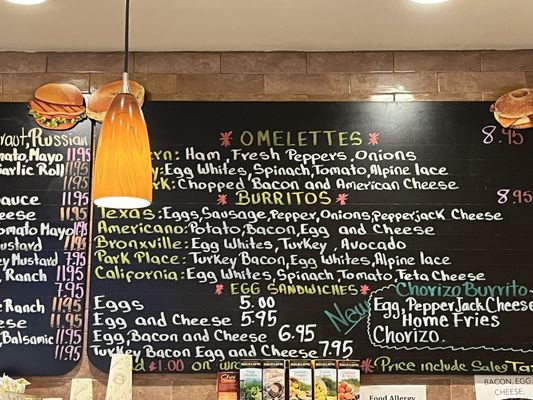 raut, Russian
omato, Mayo 11.95
Garlic Roll 11.95
11.95
sauce 11.95
heese 11.95
omato Mayo 11.95
ustard 7.95
ey Mustard 7.95
, Ranch 11.95
7.95
e Ranch 11.95
heese 11.95
, Balsamic 11.95
11.95
OMELETTES 8.95
ern: Ham, Fresh Peppers, Onions
y: Egg Whites, Spinach, Tomato, Alpine lace
rk: Chopped Bacon and American Cheese
BURRITOS 8.95
Texas: Eggs, Sausage, Pepper, Onions, Pepperjack Cheese
Americano: Potato, Bacon, Egg, and Cheese
Bronxville: Egg Whites, Turkey, Avocado
Park Place: Turkey Bacon, Egg Whites, Alpine lace
California: Egg Whites, Spinach, Tomato, Feta Cheese
EGG SANDWICHES
Eggs 5.00
Egg and Cheese 5.95
Egg, Bacon and Cheese 6.95
Turkey Bacon Egg and Cheese 7.95
d $1.00 on
New
Chorizo Burrito
Egg, Pepper Jack Cheese
Home Fries
Chorizo.
Price include Sales Tax
BIGELOW BIGELOW BIGELOW BIGELOW BIGELOW
Food Allergy
BACON, EGG
CHEESE,